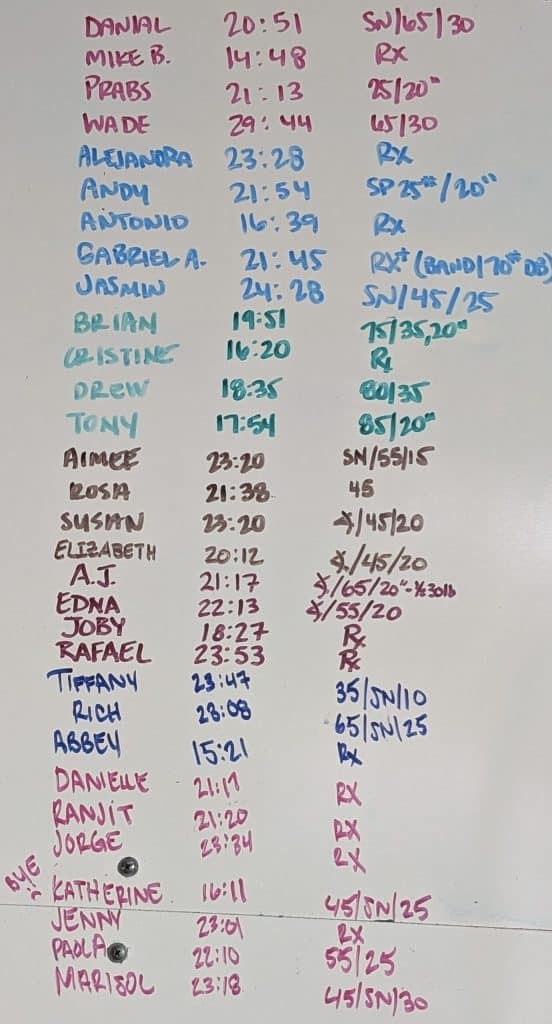 DANIAL 20:51 SN/65/30
MIKE B. 14:48 RX
PRABS 21:13 25/20"
WADE 29:44 65/30
ALEJANDRA 23:28 RX
ANDY 21:54 SP 25#/20"
ANTONIO 16:39 RX
GABRIEL A. 21:45 RX+ (BAND/70# DB)
JASMIN 24:28 SN/45/25
BRIAN 19:51 75/35,20"
CRISTINE 16:20 Rx
DREW 18:35 80/35
TONY 17:54 85/20"
AIMEE 23:20 SN/55/15
ROSIA 21:38 45
SUSIAN 23:20 /45/20
ELIZABETH 20:12 /45/20
A.J. 21:17 /65/20"-½30lb
EDNA 22:13 /55/20
JOBY 18:27 Rx
RAFAEL 23:53 Rx
TIFFANY 23:47 35/SN/10
RICH 28:08 65/SN/25
ABBEY 15:21 Rx
DANIELLE 21:17 RX
RANJIT 21:20 RX
JORGE 23:34 RX
BYE KATHERINE 16:11 45/SN/25
JENNY 23:01 RX
PAOLA 22:10 55/25
MARISOL 23:18 45/SN/30